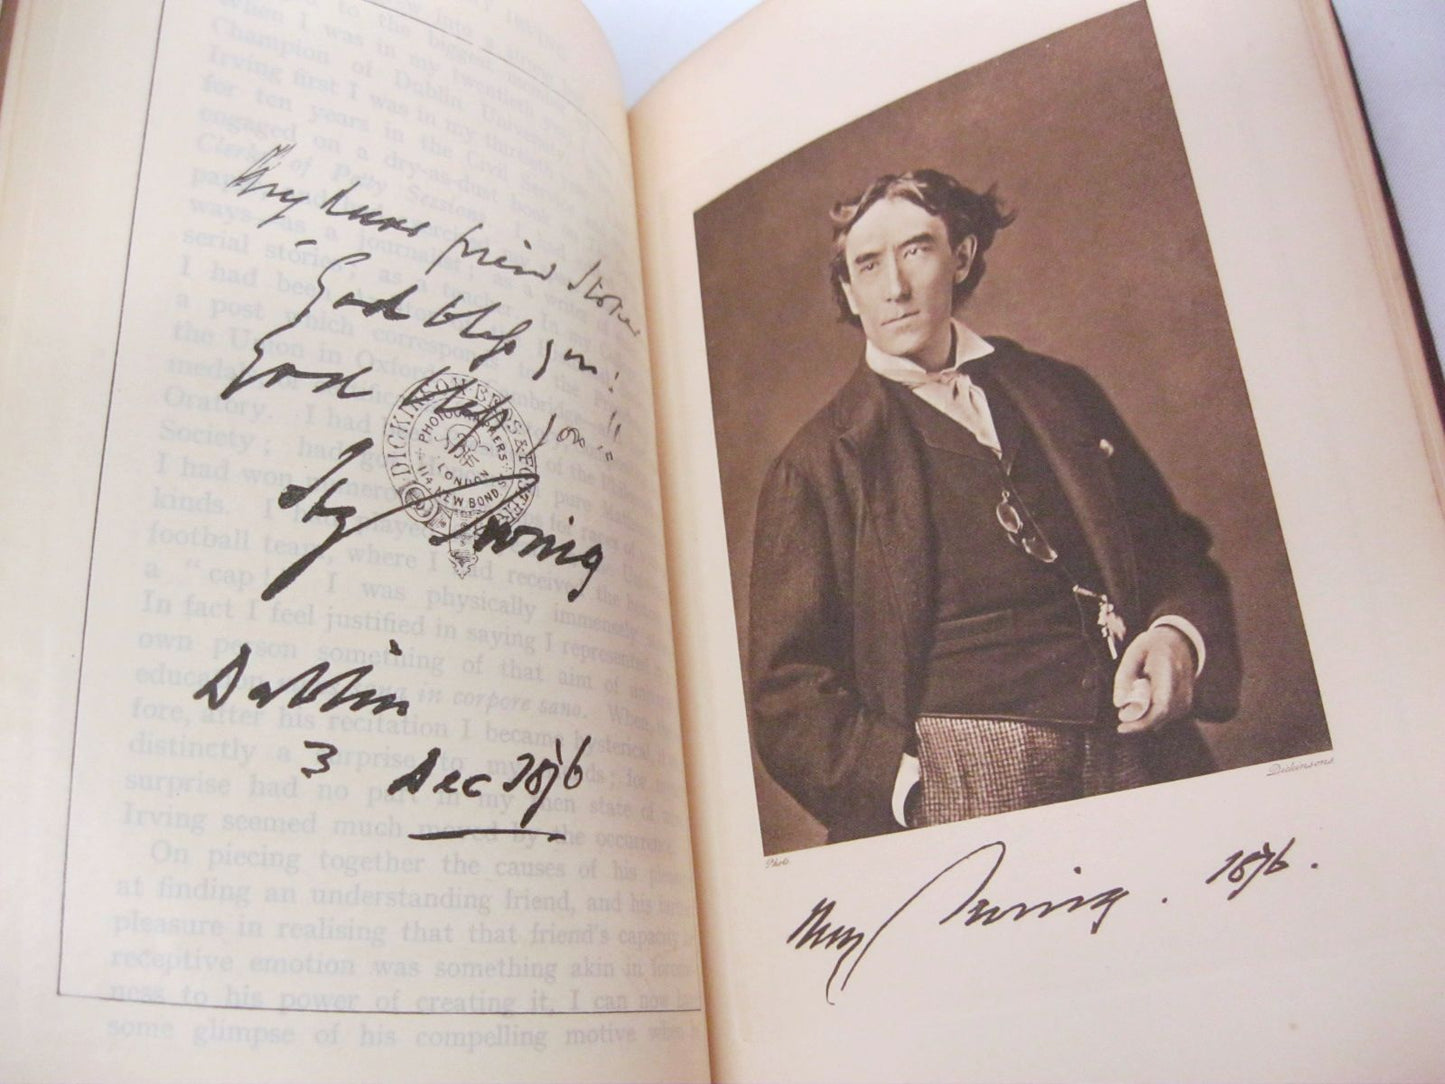 My dear friend Stoker
God bless you!
God bless you!!
Henry Irving
Dublin
3 Dec 1876
DICKINSON BROS & FOSTER
PHOTOGRAPHERS
LONDON
114 NEW BOND
Champion of Dublin University
Irving first I was in my thirtieth year
for ten years in the Civil Service
engaged on a dry-as-dust book on
Clerks of Petty Sessions. I had
ways—as a journalist; as a writer
serial stories; as a teacher. In my
I had been
a post which corresponds to the
the Union in Oxford
medal
Oratory. I had
Society; had got
I had won numerous for races of
kinds. I had played
football team, where I had received the
a "cap"! I was physically immensely
In fact I feel justified in saying I represented
own person something of that aim of
education mens sana in corpore sano. When, there-
fore, after his recitation I became hysterical, it was
distinctly a surprise to my friends; for
surprise had no part in my then state of mind.
Irving seemed much moved by the occurrence.
On piecing together the causes of his pleasure
at finding an understanding friend, and his further
pleasure in realising that that friend's capacity for
receptive emotion was something akin in forceful-
ness to his power of creating it, I can now have
some glimpse of his compelling motive when he
Photo.
Dickinsons
Henry Irving. 1876.